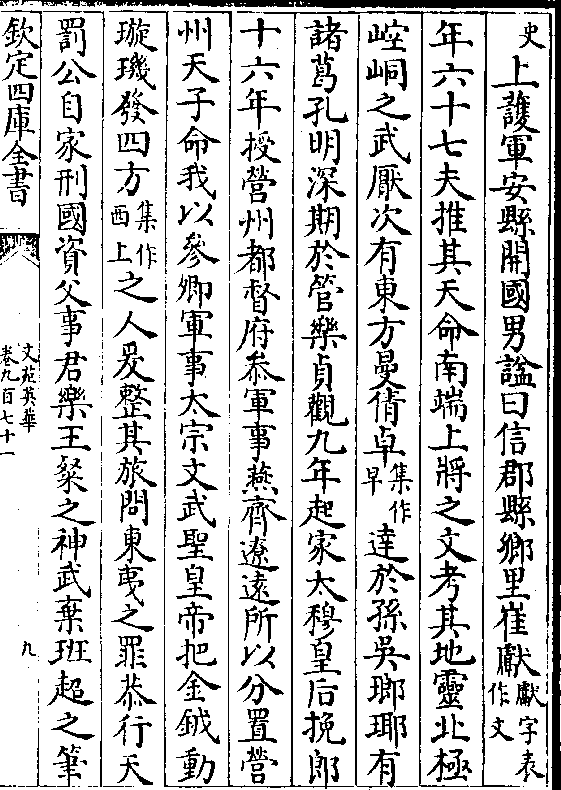 史上護軍安縣開國男諡曰信郡縣鄉里崔獻獻字表作文
年六十七夫推其天命南端上將之文考其地靈北極
崆峒之武厭次有東方曼倩卓集作早達於孫吳瑯琊有
諸葛孔明深期於管樂貞觀九年起家太穆皇后挽郎
十六年授營州都督府叅軍事燕齊遼遠所以分置營
州天子命我以參卿軍事太宗文武聖皇帝把金鉞動
璇璣發四方集作西上之人爰整其旅問東夷之罪恭行天
罰公自家刑國資父事君樂王粲之神武棄班超之筆
欽定四庫全書
文苑英華
卷九百七十一
九